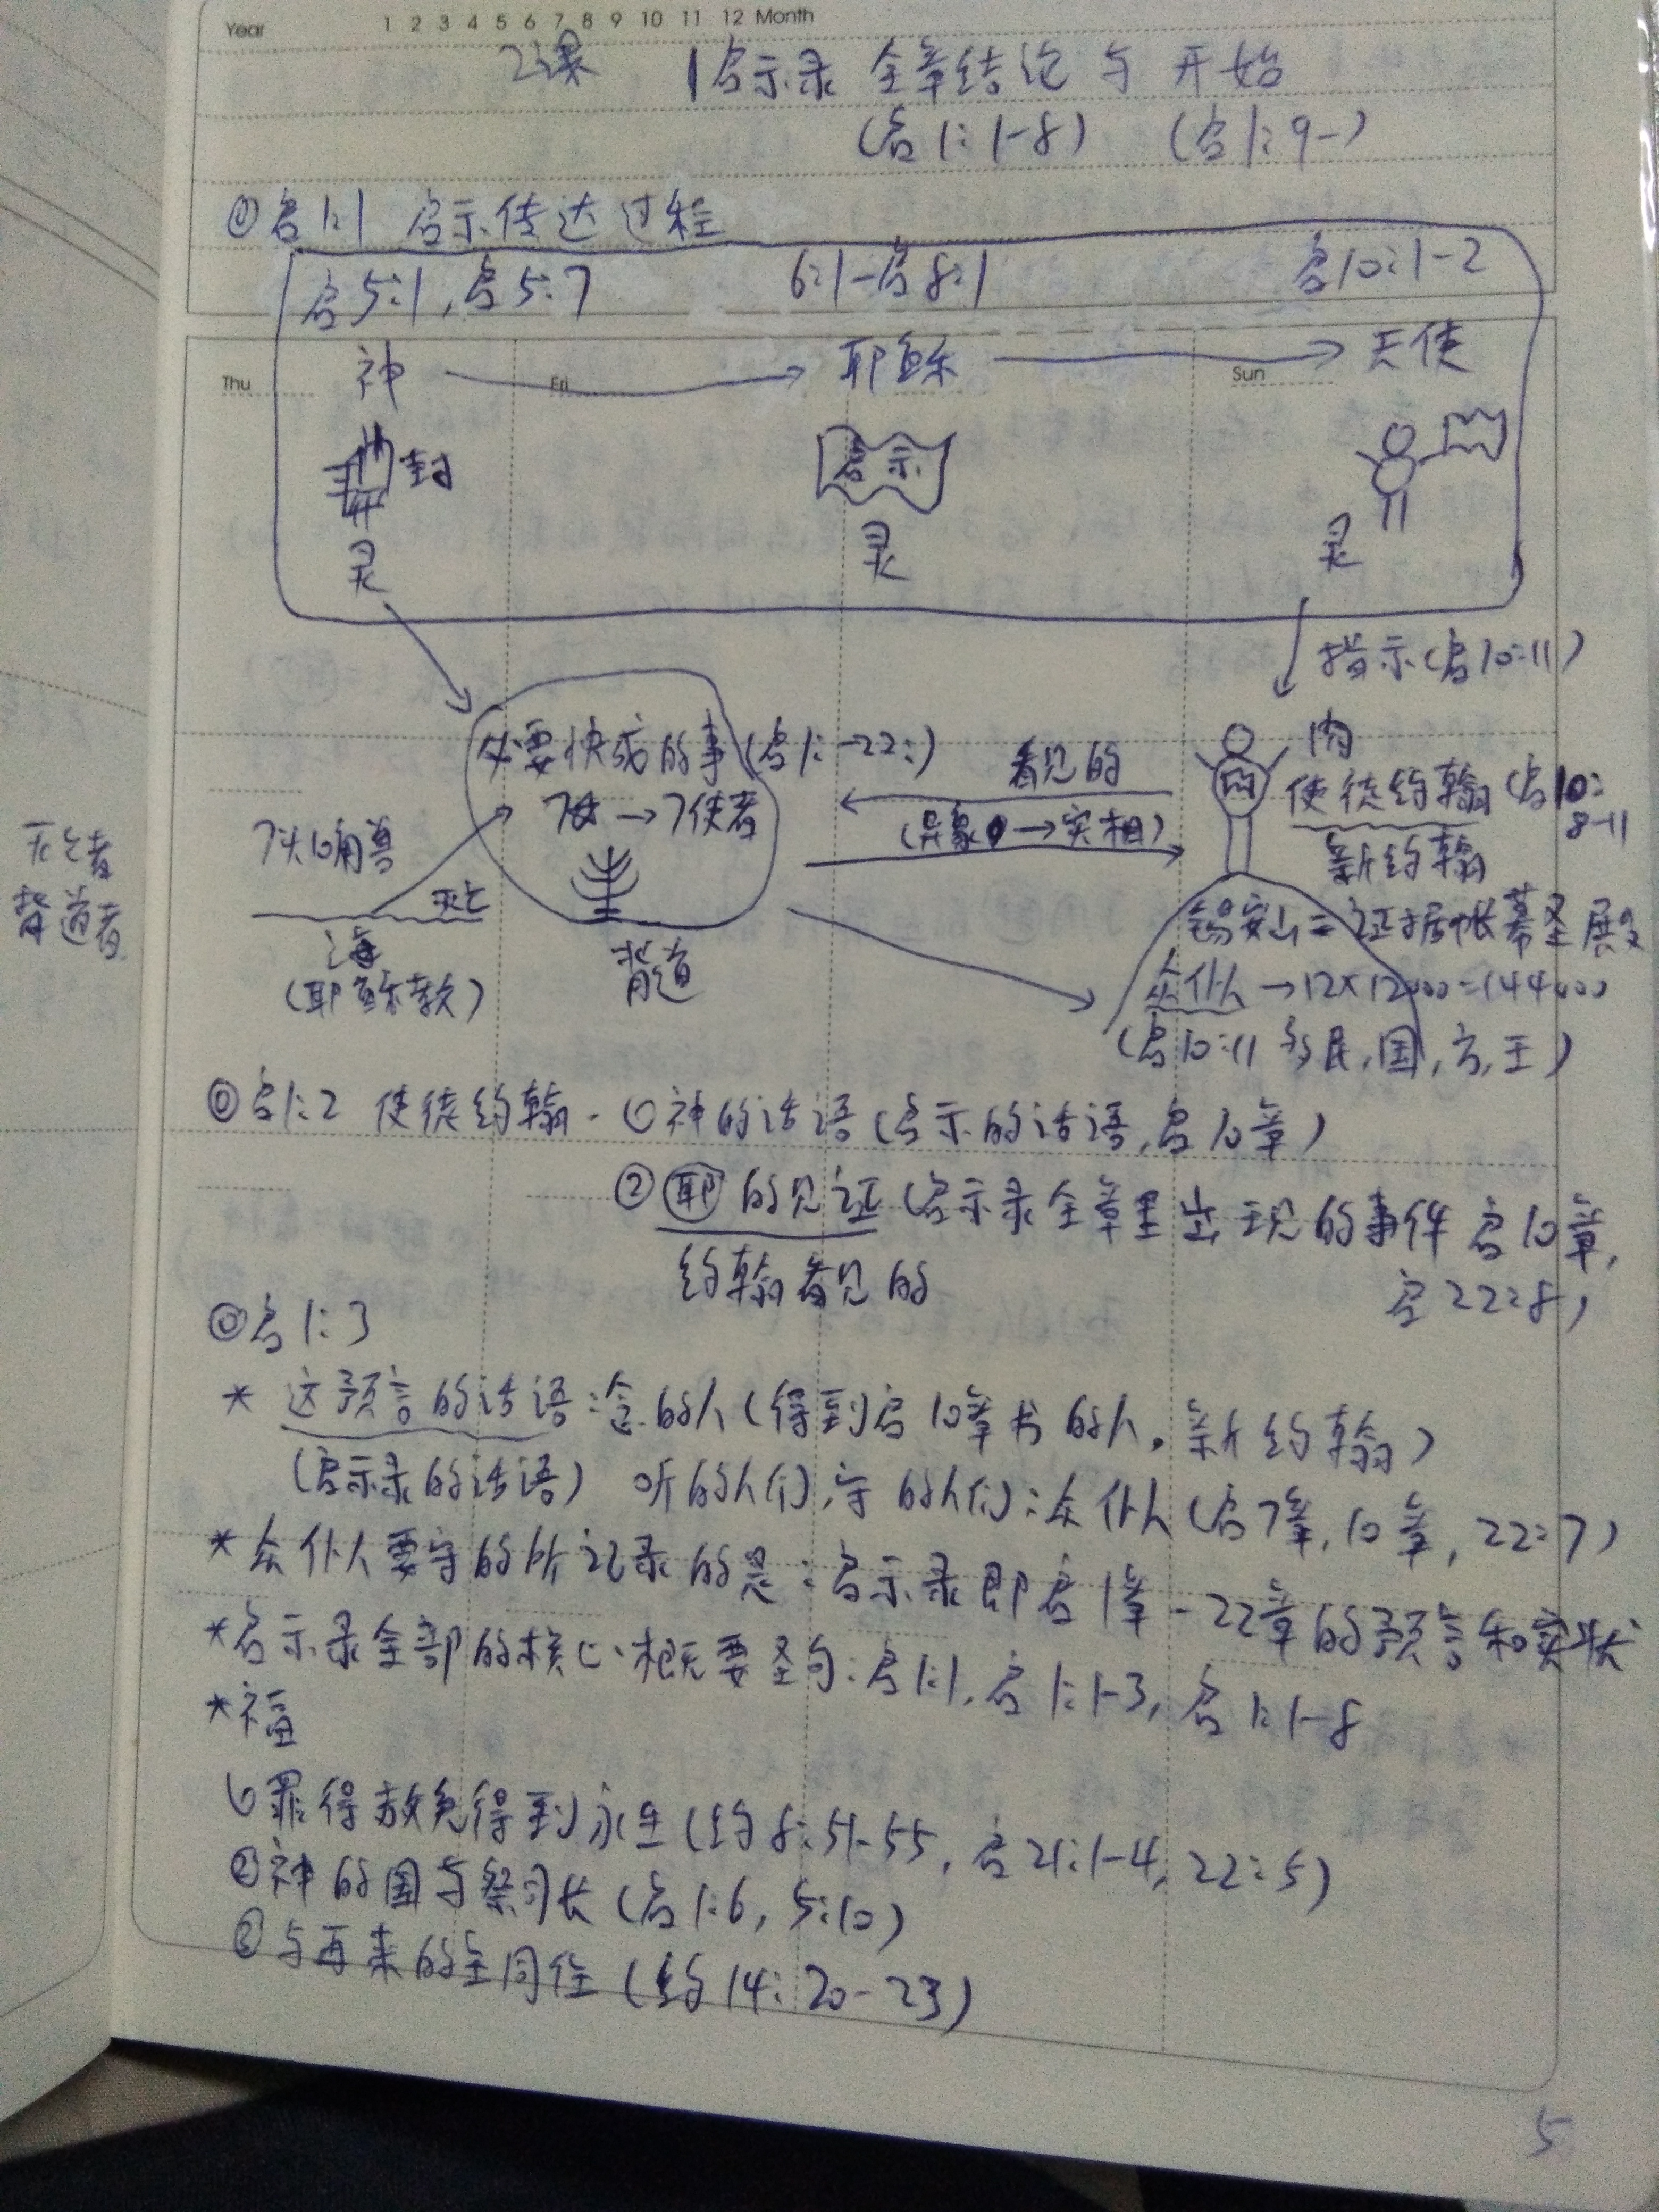 Year 1 2 3 4 5 6 7 8 9 10 11 12 Month
2课 启示录 全章结论与开始
(启1:1-8) (启1:9-)
◎启1:1 启示传达过程
启5:1,启5:7 6:1-启8:1 启10:1-2
神 耶稣 天使
Thu Fri Sun
封 启示
灵 灵 灵
指示(启10:11)
必要快成的事(启1:-22:) 看见的 肉
7灯→7使者 (异象→实相) 使徒约翰(启10:8-11)
7头10角兽 新约翰
灭亡者 灭亡
背道者 锡安山=证据帐幕圣殿
海 背道 众仆人→12×12000=144000
(耶稣教) (启10:11多民,国,方,王)
◎启1:2 使徒约翰·①神的话语(启示的话语,启10章)
②耶的见证(启示录全章里出现的事件启10章,
约翰看见的 启22:8)
◎启1:3
*这预言的话语:念的人(得到启10章书的人,新约翰)
(启示录的话语) 听的人们,守的人们:众仆人(启7章,10章,22:7)
*众仆人要守的所记录的是:启示录即启1章-22章的预言和实状
*启示录全部的核心·概要圣句:启1:1,启1:1-3,启1:1-8
*福
①罪得赦免得到永生(约8:51-55,启21:1-4,22:5)
②神的国与祭司长(启1:6,5:10)
③与再来的主同住(约14:20-23)
5